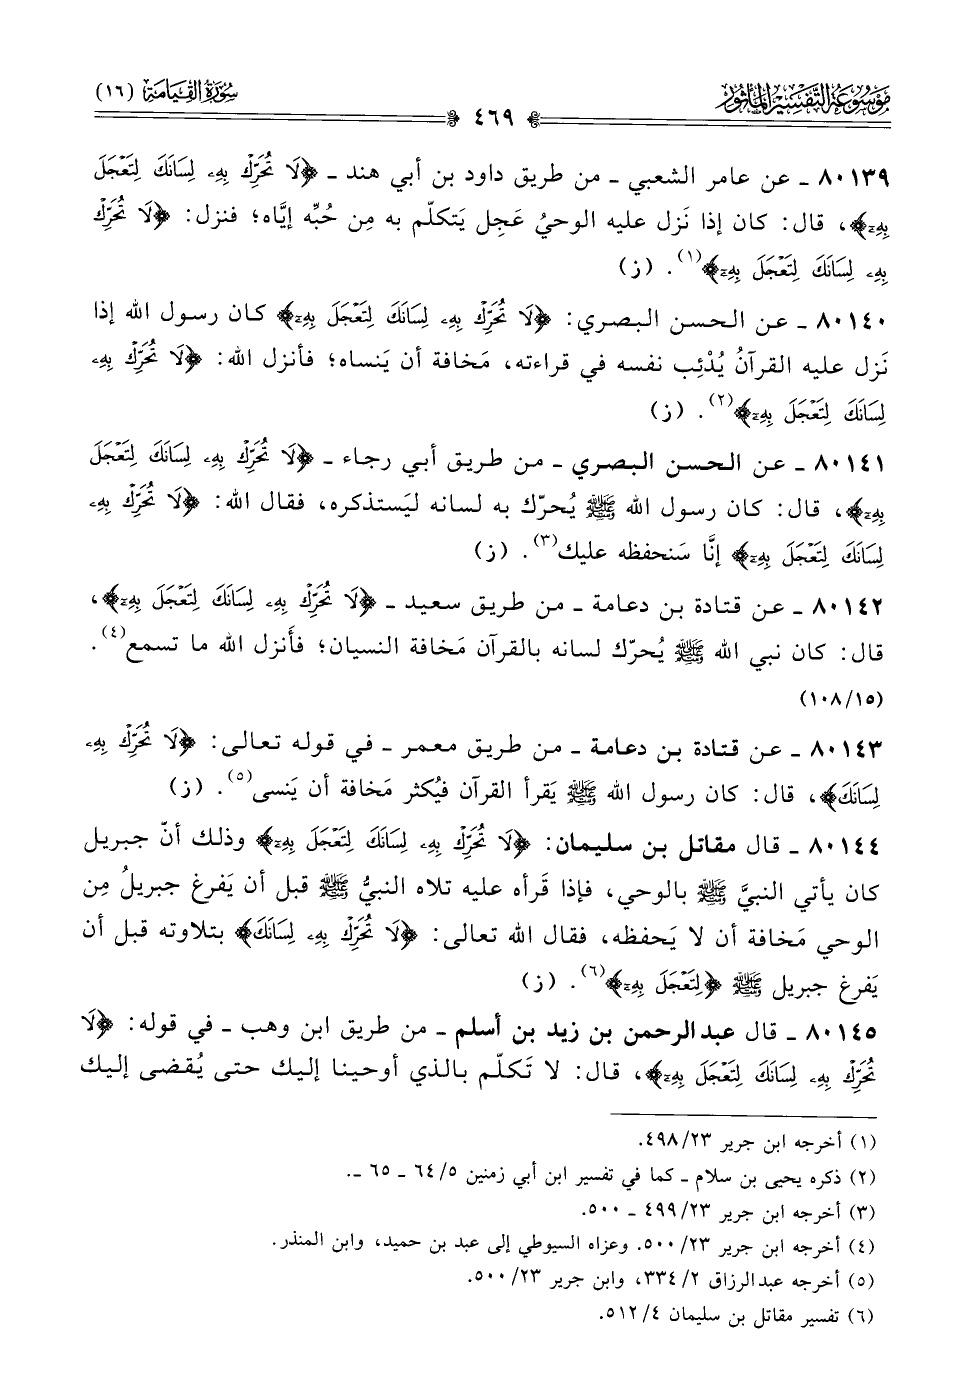 مَوْسُوعَةُ التَّفْسِيرِ المَأْثُورِ
٤٦٩
سُورَةُ القِيَامَةِ (١٦)
٨٠١٣٩ ـ عن عامر الشعبي ـ من طريق داود بن أبي هند ـ ﴿لَا تُحَرِّكۡ بِهِۦ لِسَانَكَ لِتَعۡجَلَ
بِهِۦٓ﴾، قال: كان إذا نَزل عليه الوحيُ عَجِل يَتكلّم به مِن حُبِّه إيَّاه؛ فنزل: ﴿لَا تُحَرِّكۡ
بِهِۦ لِسَانَكَ لِتَعۡجَلَ بِهِۦٓ﴾(١). (ز)
٨٠١٤٠ ـ عن الحسن البصري: ﴿لَا تُحَرِّكۡ بِهِۦ لِسَانَكَ لِتَعۡجَلَ بِهِۦٓ﴾ كان رسول الله إذا
نَزل عليه القرآنُ يُدْئِب نفسه في قراءته، مَخافة أن يَنساه؛ فأنزل الله: ﴿لَا تُحَرِّكۡ بِهِۦ
لِسَانَكَ لِتَعۡجَلَ بِهِۦٓ﴾(٢). (ز)
٨٠١٤١ ـ عن الحسن البصري ـ من طريق أبي رجاء ـ ﴿لَا تُحَرِّكۡ بِهِۦ لِسَانَكَ لِتَعۡجَلَ
بِهِۦٓ﴾، قال: كان رسول الله ﷺ يُحرّك به لسانه ليَستذكره، فقال الله: ﴿لَا تُحَرِّكۡ بِهِۦ
لِسَانَكَ لِتَعۡجَلَ بِهِۦٓ﴾ إنَّا سَنحفظه عليك(٣). (ز)
٨٠١٤٢ ـ عن قتادة بن دعامة ـ من طريق سعيد ـ ﴿لَا تُحَرِّكۡ بِهِۦ لِسَانَكَ لِتَعۡجَلَ بِهِۦٓ﴾،
قال: كان نبي الله ﷺ يُحرّك لسانه بالقرآن مَخافة النسيان؛ فأَنزل الله ما تسمع(٤).
(١٥/ ١٠٨)
٨٠١٤٣ ـ عن قتادة بن دعامة ـ من طريق معمر ـ في قوله تعالى: ﴿لَا تُحَرِّكۡ بِهِۦ
لِسَانَكَ﴾، قال: كان رسول الله ﷺ يَقرأ القرآن فيُكثر مَخافة أن يَنسى(٥). (ز)
٨٠١٤٤ ـ قال مقاتل بن سليمان: ﴿لَا تُحَرِّكۡ بِهِۦ لِسَانَكَ لِتَعۡجَلَ بِهِۦٓ﴾ وذلك أنّ جبريل
كان يأتي النبيَّ ﷺ بالوحي، فإذا قَرأه عليه تلاه النبيُّ ﷺ قبل أن يَفرغ جبريلُ مِن
الوحي مَخافة أن لا يَحفظه، فقال الله تعالى: ﴿لَا تُحَرِّكۡ بِهِۦ لِسَانَكَ﴾ بتلاوته قبل أن
يَفرغ جبريل ﷺ ﴿لِتَعۡجَلَ بِهِۦٓ﴾(٦). (ز)
٨٠١٤٥ ـ قال عبدالرحمن بن زيد بن أسلم ـ من طريق ابن وهب ـ في قوله: ﴿لَا
تُحَرِّكۡ بِهِۦ لِسَانَكَ لِتَعۡجَلَ بِهِۦٓ﴾، قال: لا تَكلّم بالذي أوحينا إليك حتى يُقضى إليك
(١) أخرجه ابن جرير ٢٣/ ٤٩٨.
(٢) ذكره يحيى بن سلام ـ كما في تفسير ابن أبي زمنين ٥/ ٦٤ ـ ٦٥ ـ.
(٣) أخرجه ابن جرير ٢٣/ ٤٩٩ ـ ٥٠٠.
(٤) أخرجه ابن جرير ٢٣/ ٥٠٠. وعزاه السيوطي إلى عبد بن حميد، وابن المنذر.
(٥) أخرجه عبدالرزاق ٢/ ٣٣٤، وابن جرير ٢٣/ ٥٠٠.
(٦) تفسير مقاتل بن سليمان ٤/ ٥١٢.